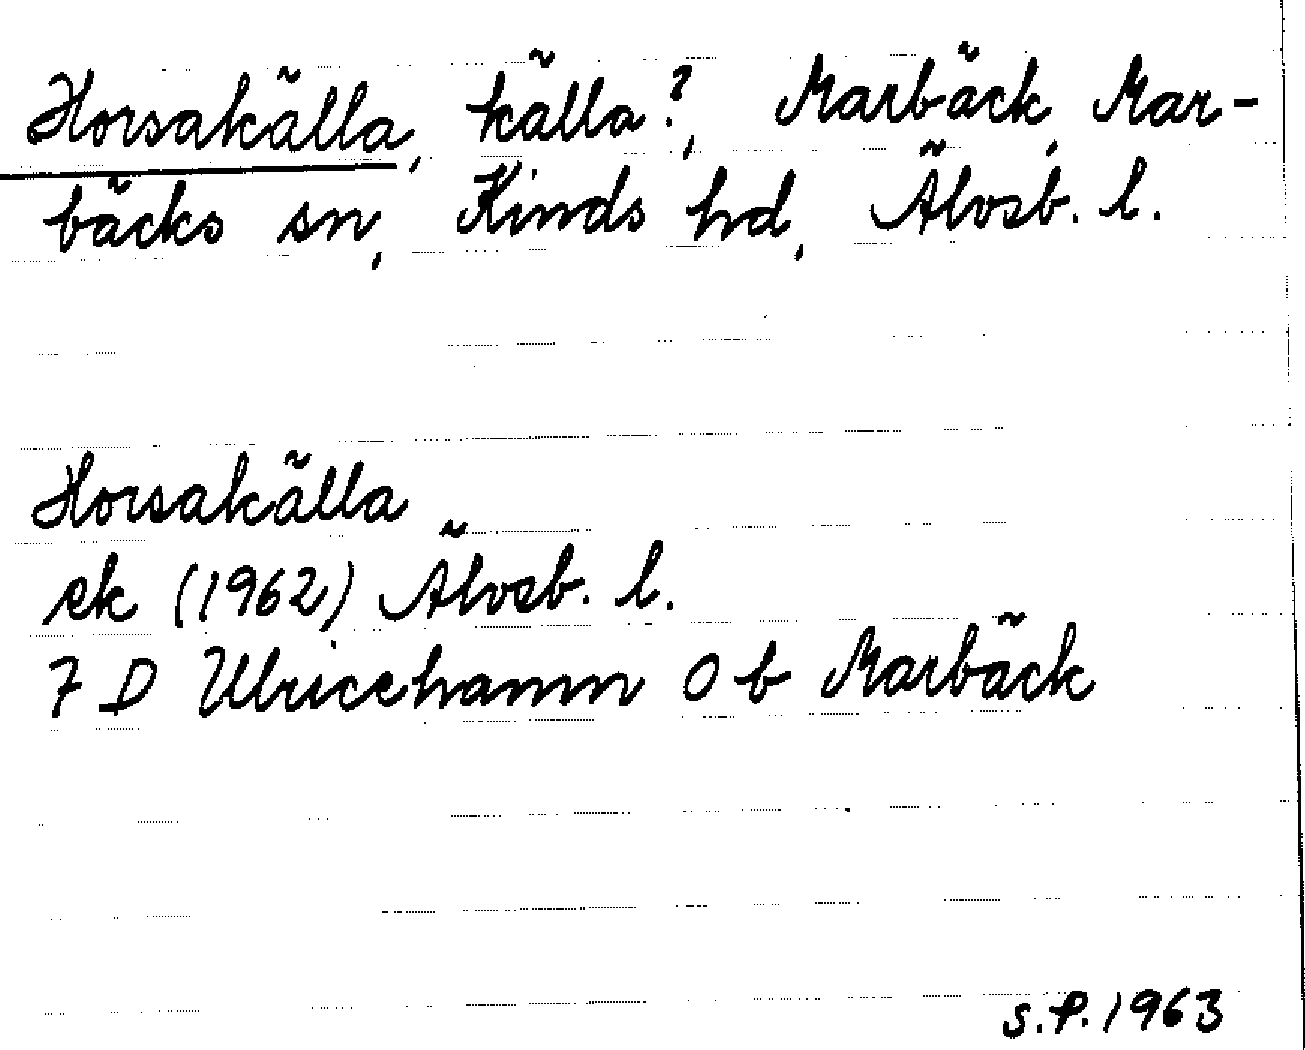 Horsakälla, källa?, Marbäck, Mar-
bäcks sn, Kinds hd, Älvsb. l.
Horsakälla
ek (1962) Älvsb. l.
7 D Ulricehamn 0 b Marbäck
S.P. 1963